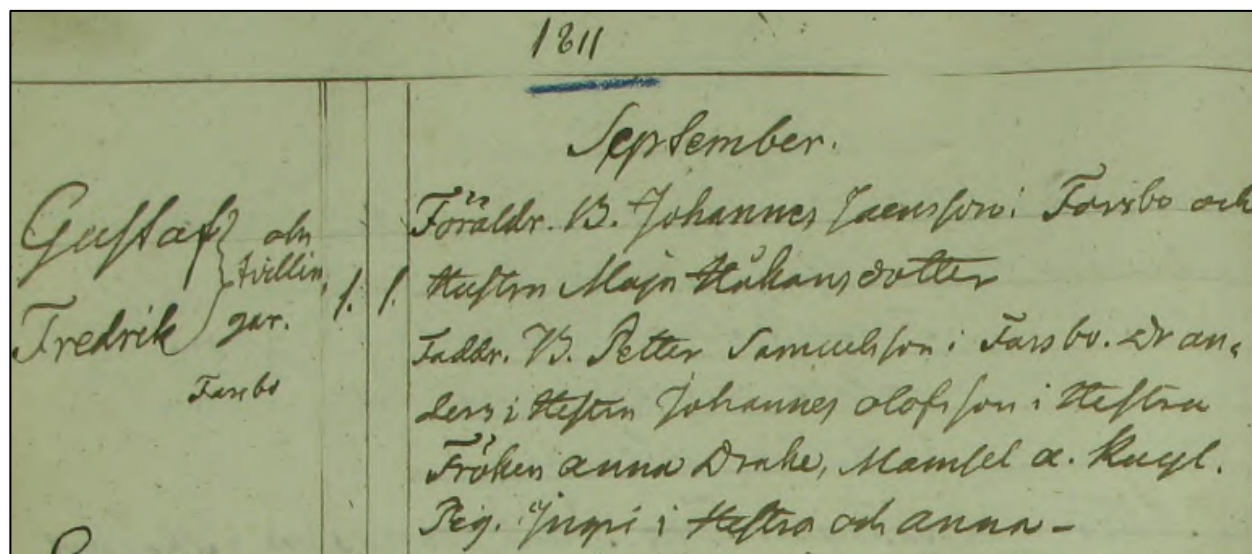 1811
September.
Gustaf
Fredrik
och
tvillin,
gar.
Farsbo
1. 1.
Föräldr. B. Johannes Jaensson i Farsbo och
Hustru Maja Håkansdotter
Faddr. B. Petter Samuelsson i Farsbo. Dr an„
ders i Hestra Johannes olofsson i Hestra
Fröken anna Drake, Mamsel a.
Pig. Ingri i Hestra och anna –